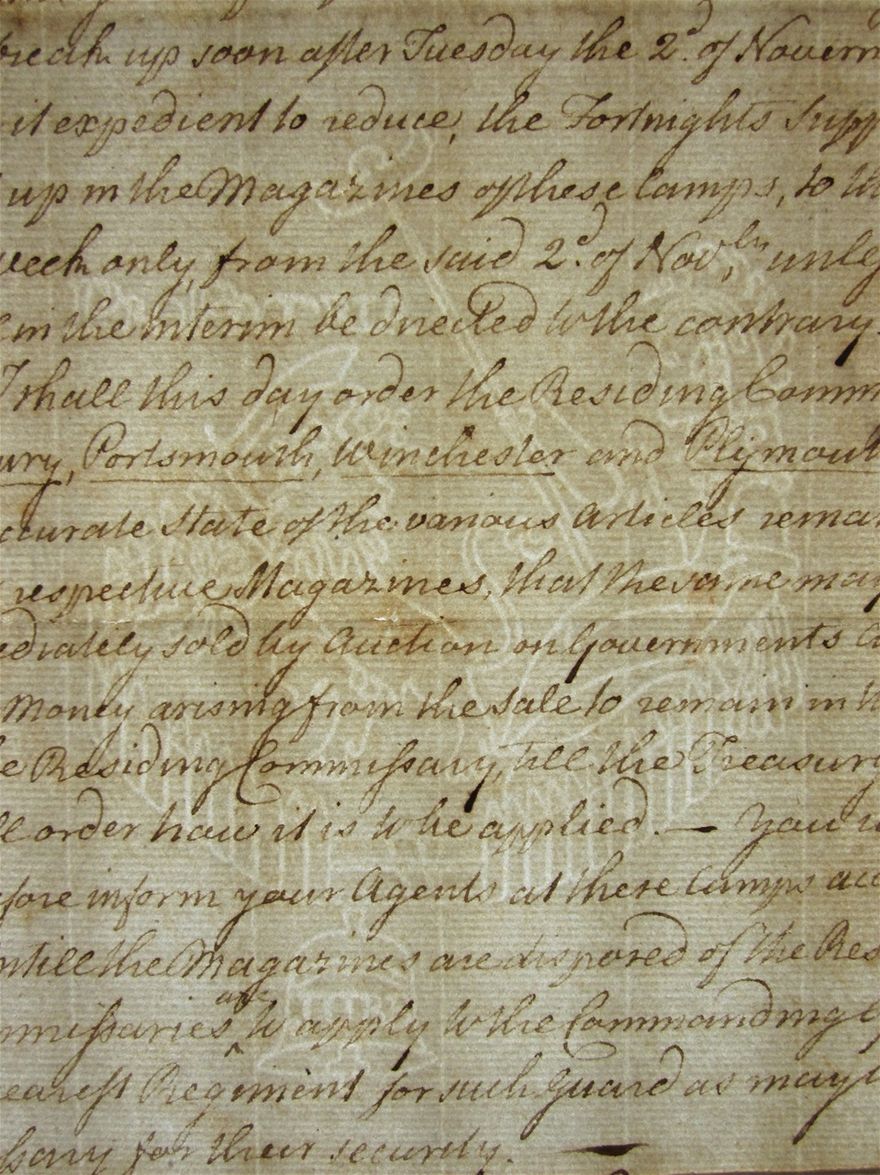 break up soon after Tuesday the 2d. of Novem
it expedient to reduce, the Fortnights Supp
up in the Magazines of these Camps, to th
week only, from the said 2d. of Novbr., unless
in the interim be directed to the contrary.
I shall this day order the Residing Comm
ury, Portsmouth, Winchester and Plymouth
ccurate State of the various Articles remai
respective Magazines, that the same may
ediately sold by Auction on Governments A
Money arising from the Sale to remain in th
e Residing Commissary, till the Treasury
ll order how it is to be applied. — You w
efore inform your Agents at these Camps acc
ntill the Magazines are disposed of the Res
mmissaries are to apply to the Commanding
earest Regiment for such Guard as may b
ssary for their security. —